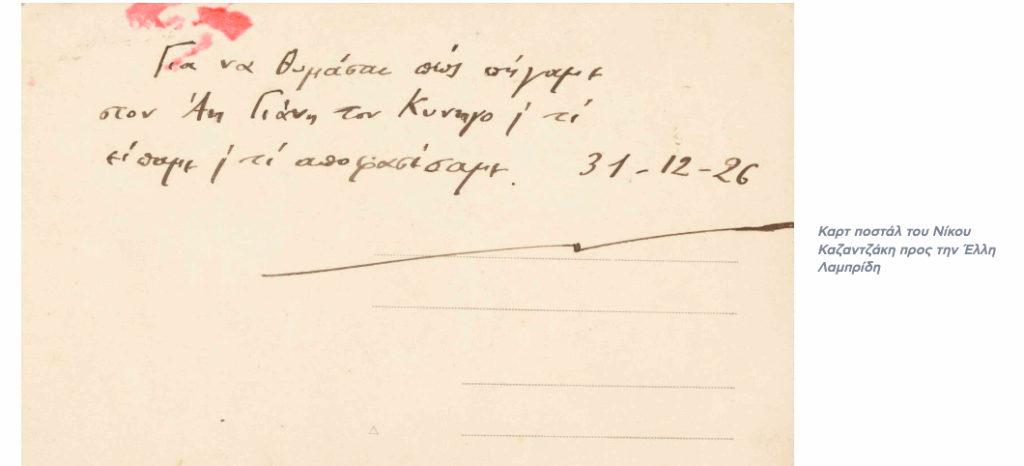 Για να θυμάσαι πώς πήγαμε
στον Άη Γιάνη τον Κυνηγό ϳ τί
είπαμε ϳ τί αποφασίσαμε. 31-12-26
Καρτ ποστάλ του Νίκου
Καζαντζάκη προς την Έλλη
Λαμπρίδη